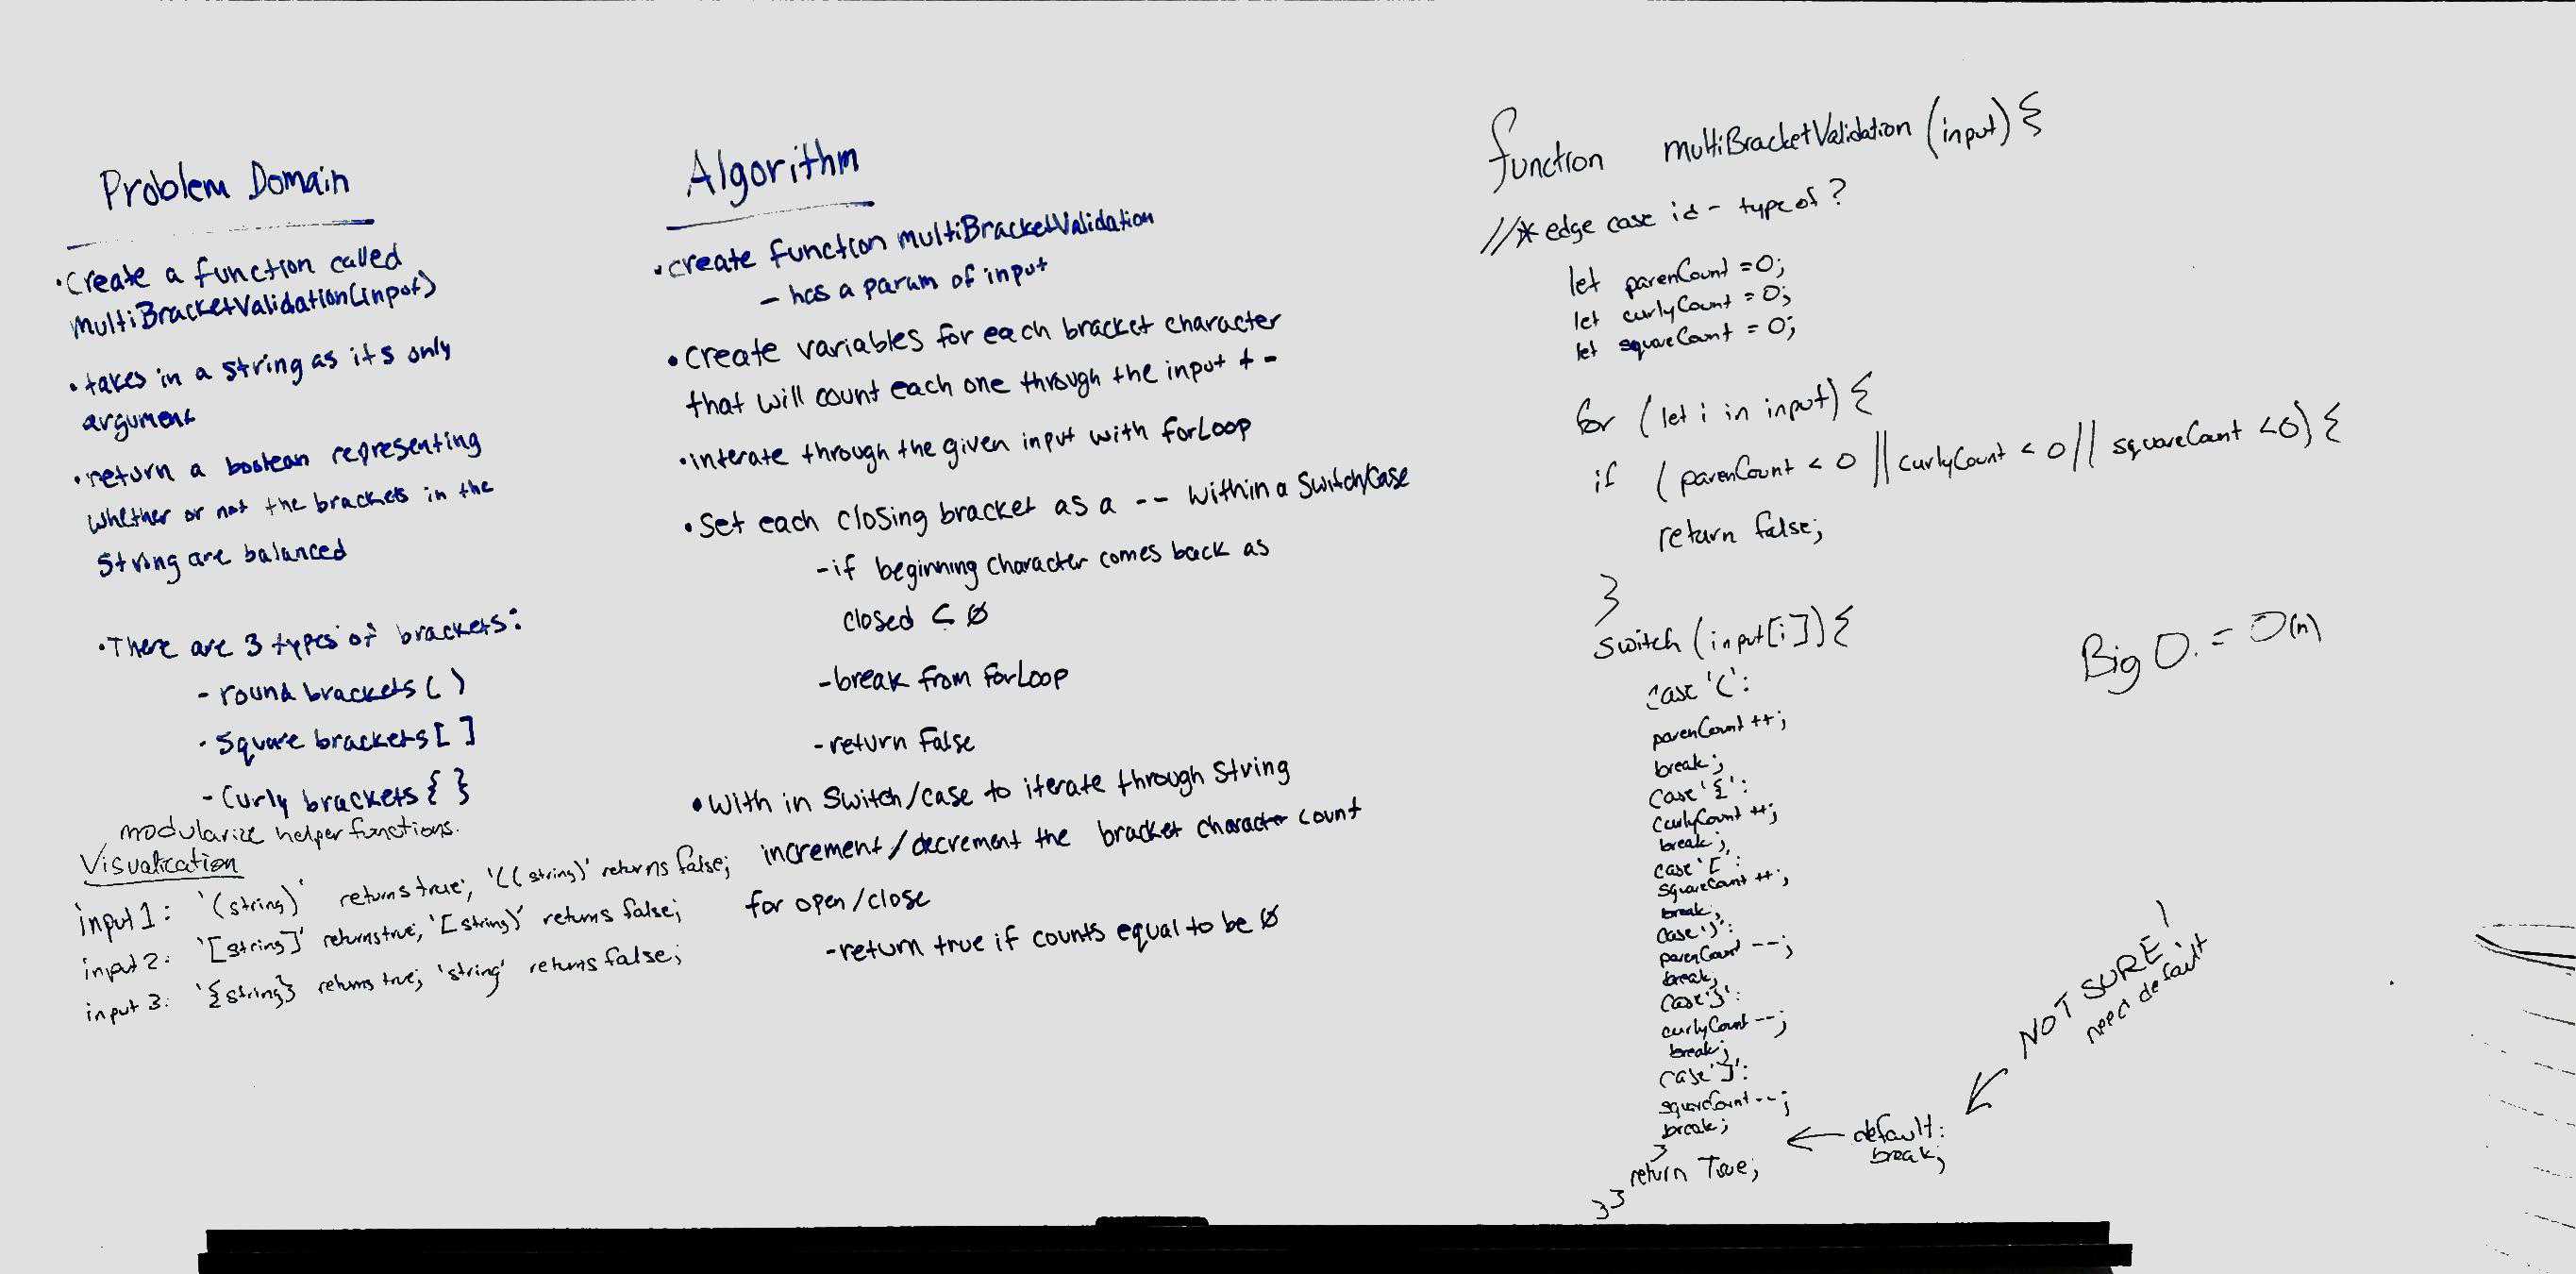 Problem Domain
• Create a function called
multiBracketValidation(input)
• takes in a string as its only
argument
• return a boolean representing
whether or not the brackets in the
string are balanced
• There are 3 types of brackets:
- round brackets ( )
- Square brackets [ ]
- Curly brackets { }
modularize helper functions.
Visualization
input 1: '(string)' returns true; '((string)' returns false;
input 2: '[string]' returns true; '[string)' returns false;
input 3: '{string} returns true; 'string' returns false;
Algorithm
• create function multiBracketValidation
- has a param of input
• Create variables for each bracket character
that will count each one through the input + -
• interate through the given input with forLoop
• Set each closing bracket as a -- within a Switch/Case
- if beginning character comes back as
closed < 0
- break from forLoop
- return False
• With in Switch/case to iterate through String
increment/decrement the bracket character count
for open/close
- return true if counts equal to be 0
function multiBracketValidation (input) {
//* edge case id - type of ?
let parenCount = 0;
let curlyCount = 0;
let squareCount = 0;
for (let i in input) {
if (parenCount < 0 || curlyCount < 0 || squareCount < 0) {
return false;
}
switch (input[i]) {
case '(':
parenCount ++;
break;
case '{':
curlyCount ++;
break;
case '[':
squareCount ++;
break;
case ')':
parenCount --;
break;
case '}':
curlyCount --;
break;
case ']':
squareCount --;
break;
}
return True;
}}
Big O. = O(n)
NOT SURE!
need default
default:
break;